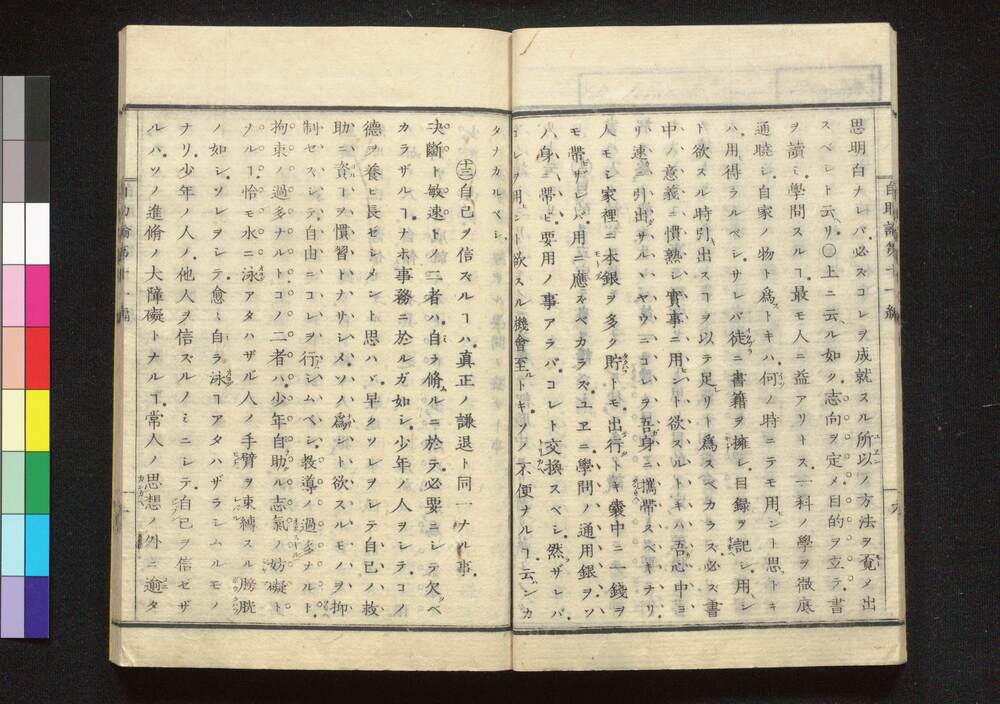 思明白ナレバ必ズコレヲ成就スル所以ノ方法ヲ覓メ出
スベシト云リ〇上ニ云ル如ク志向ヲ定メ目的ヲ立テ書
ヲ讀ミ學問スルヿ最モ人ニ益アリトス一科ノ學ヲ徹底
通曉シ自家ノ物ト爲トキハ何ノ時ニテモ用ント思トキ
ハ用得ラルベシサレバ徒ニ書籍ヲ擁シ目録ヲ記シ用ン
ト欲スル時引出スヿヲ以テ足リト爲スベカラズ必ズ書
中ノ意義ニ慣熟シ實事ニ用ント欲スルトキハ吾心中ヨ
リ速ニ引出サルヽヤウニコレヲ吾身ニ攜帶スベキナリ
人モシ家裡ニ本銀ヲ多ク貯トモ出行トキ嚢中ニ一錢ヲ
モ帶ザレバ用ニ應ズベカラズユヱニ學問ノ通用銀ヲツ
ハ身ニ帶ビ要用ノ事アラバコレト交換スベシ然ザレバ
コレヲ用ント欲スル機會至ルトキソノ不便ナルヿ云ンカ
タナカルベシ
十三自己ヲ信ズルヿハ眞正ノ謙退ト同一ナル事
決斷ト敏速トノ二者ハ自ラ脩ルニ於テ必要ニシテ欠ベ
カラザルヿナホ事務ニ於ルガ如シ少年ノ人ヲシテコノ
德ヲ養ヒ長ゼシメント思ハヾ早クソレヲシテ自己ノ救
助ニ資ルヿヲ慣習トナサシメソノ爲ント欲スルモノヲ抑
制セズシテ自由ニコレヲ行シムベシ教導ノ過多ナルト
拘束ノ過多ナルトコノ二者ハ少年自助ル志氣ノ妨礙ト
ナルヿ恰モ水ニ泳アタハザル人ノ手臂ヲ束縛スル膀胱
ノ如シソレヲシテ愈〻自ラ泳ヿアタハザラシムルモノ
ナリ少年ノ人ノ他人ヲ信ズルノミニシテ自己ヲ信ゼザ
ルハソノ進脩ノ大障礙トナルヿ常人ノ思想ノ外ニ逾タ